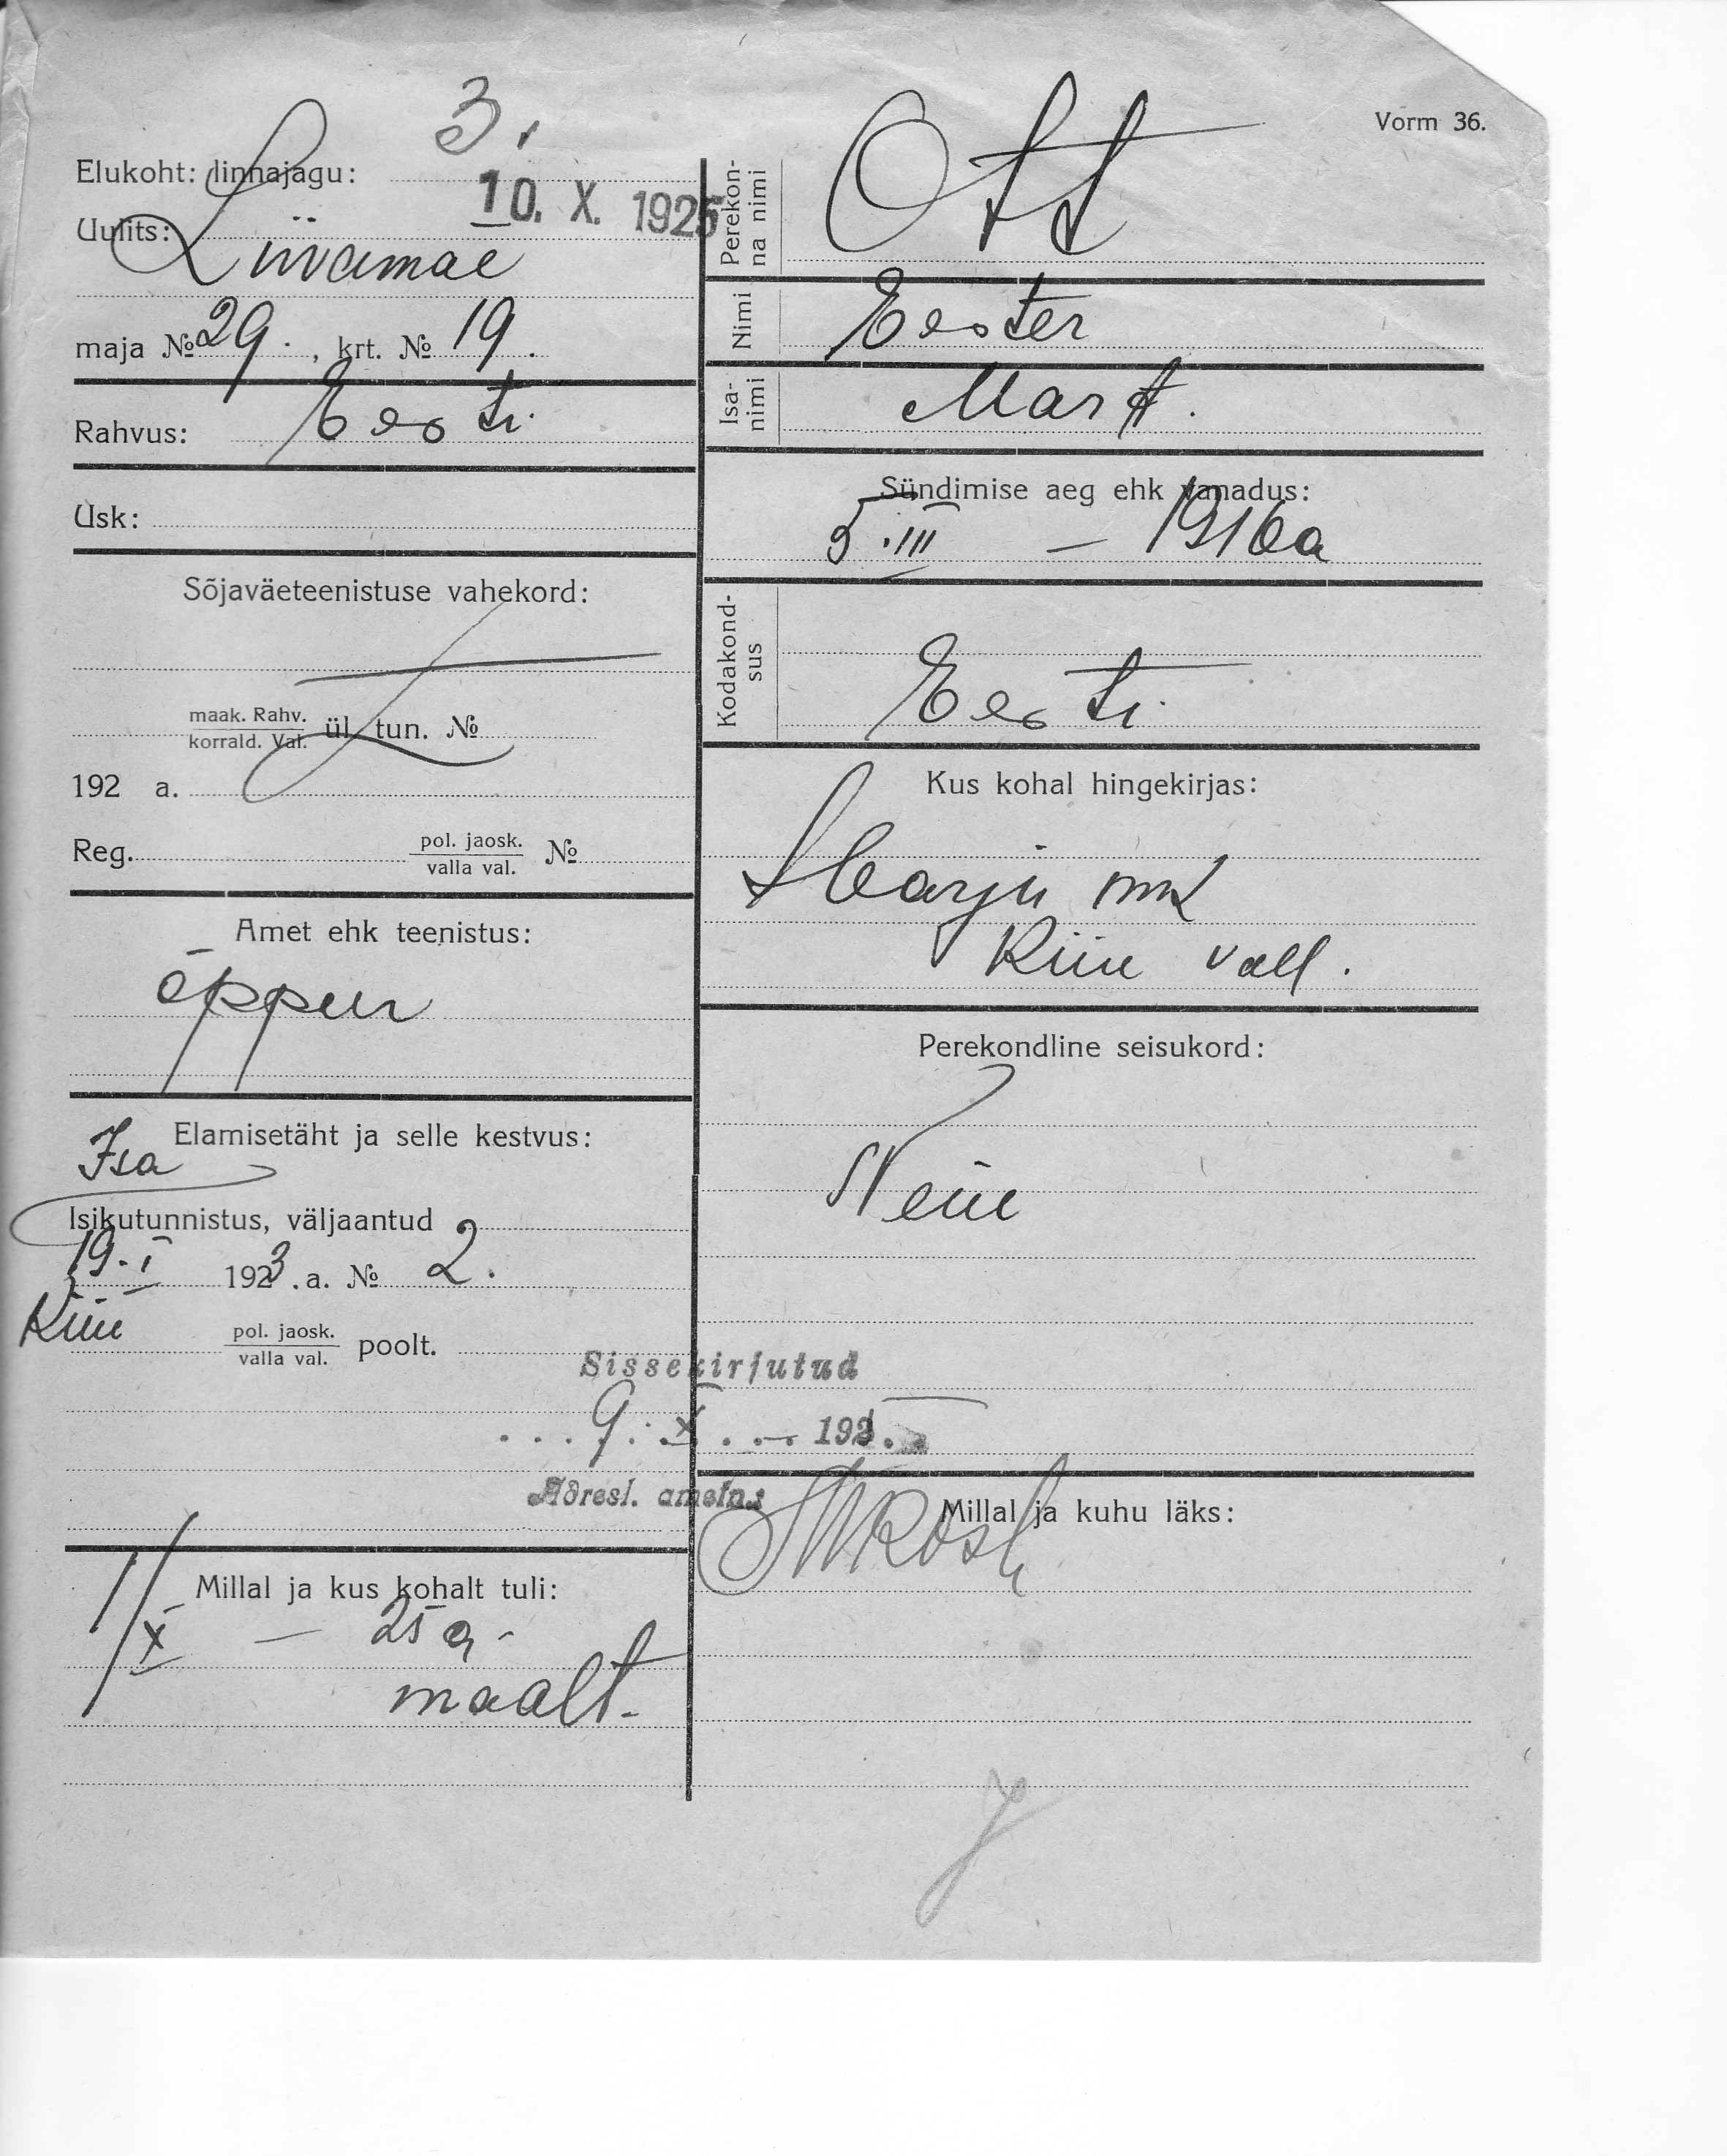 Vorm 36.
3.
Elukoht: linnajagu:
10. X. 1925
Uulits:
Liivamäe
maja № 29. , krt. № 19.
Rahvus: Eesti
Usk:
Sõjaväeteenistuse vahekord:
maak. Rahv.
korrald. Val. ül. tun. №
192 a.
Reg. pol. jaosk. №
valla val.
Amet ehk teenistus:
õppur
Elamisetäht ja selle kestvus:
Isa
Isikutunnistus, väljaantud
19. I 1923 . a. № 2.
Kiiu pol. jaosk. poolt.
valla val.
Sissekirjutud
. . . 9. X . . . 192 .
Adresl. ametn.:
Millal ja kus kohalt tuli:
1/X — 25 a.
maalt.
Perekon-
na nimi
Ott
Nimi Eester
Isa-
nimi
Mart.
Sündimise aeg ehk vanadus:
5. III — 1916a
Kodakond-
sus
Eesti
Kus kohal hingekirjas:
Harju mk
Kiiu vall.
Perekondline seisukord:
Neiu
Millal ja kuhu läks: